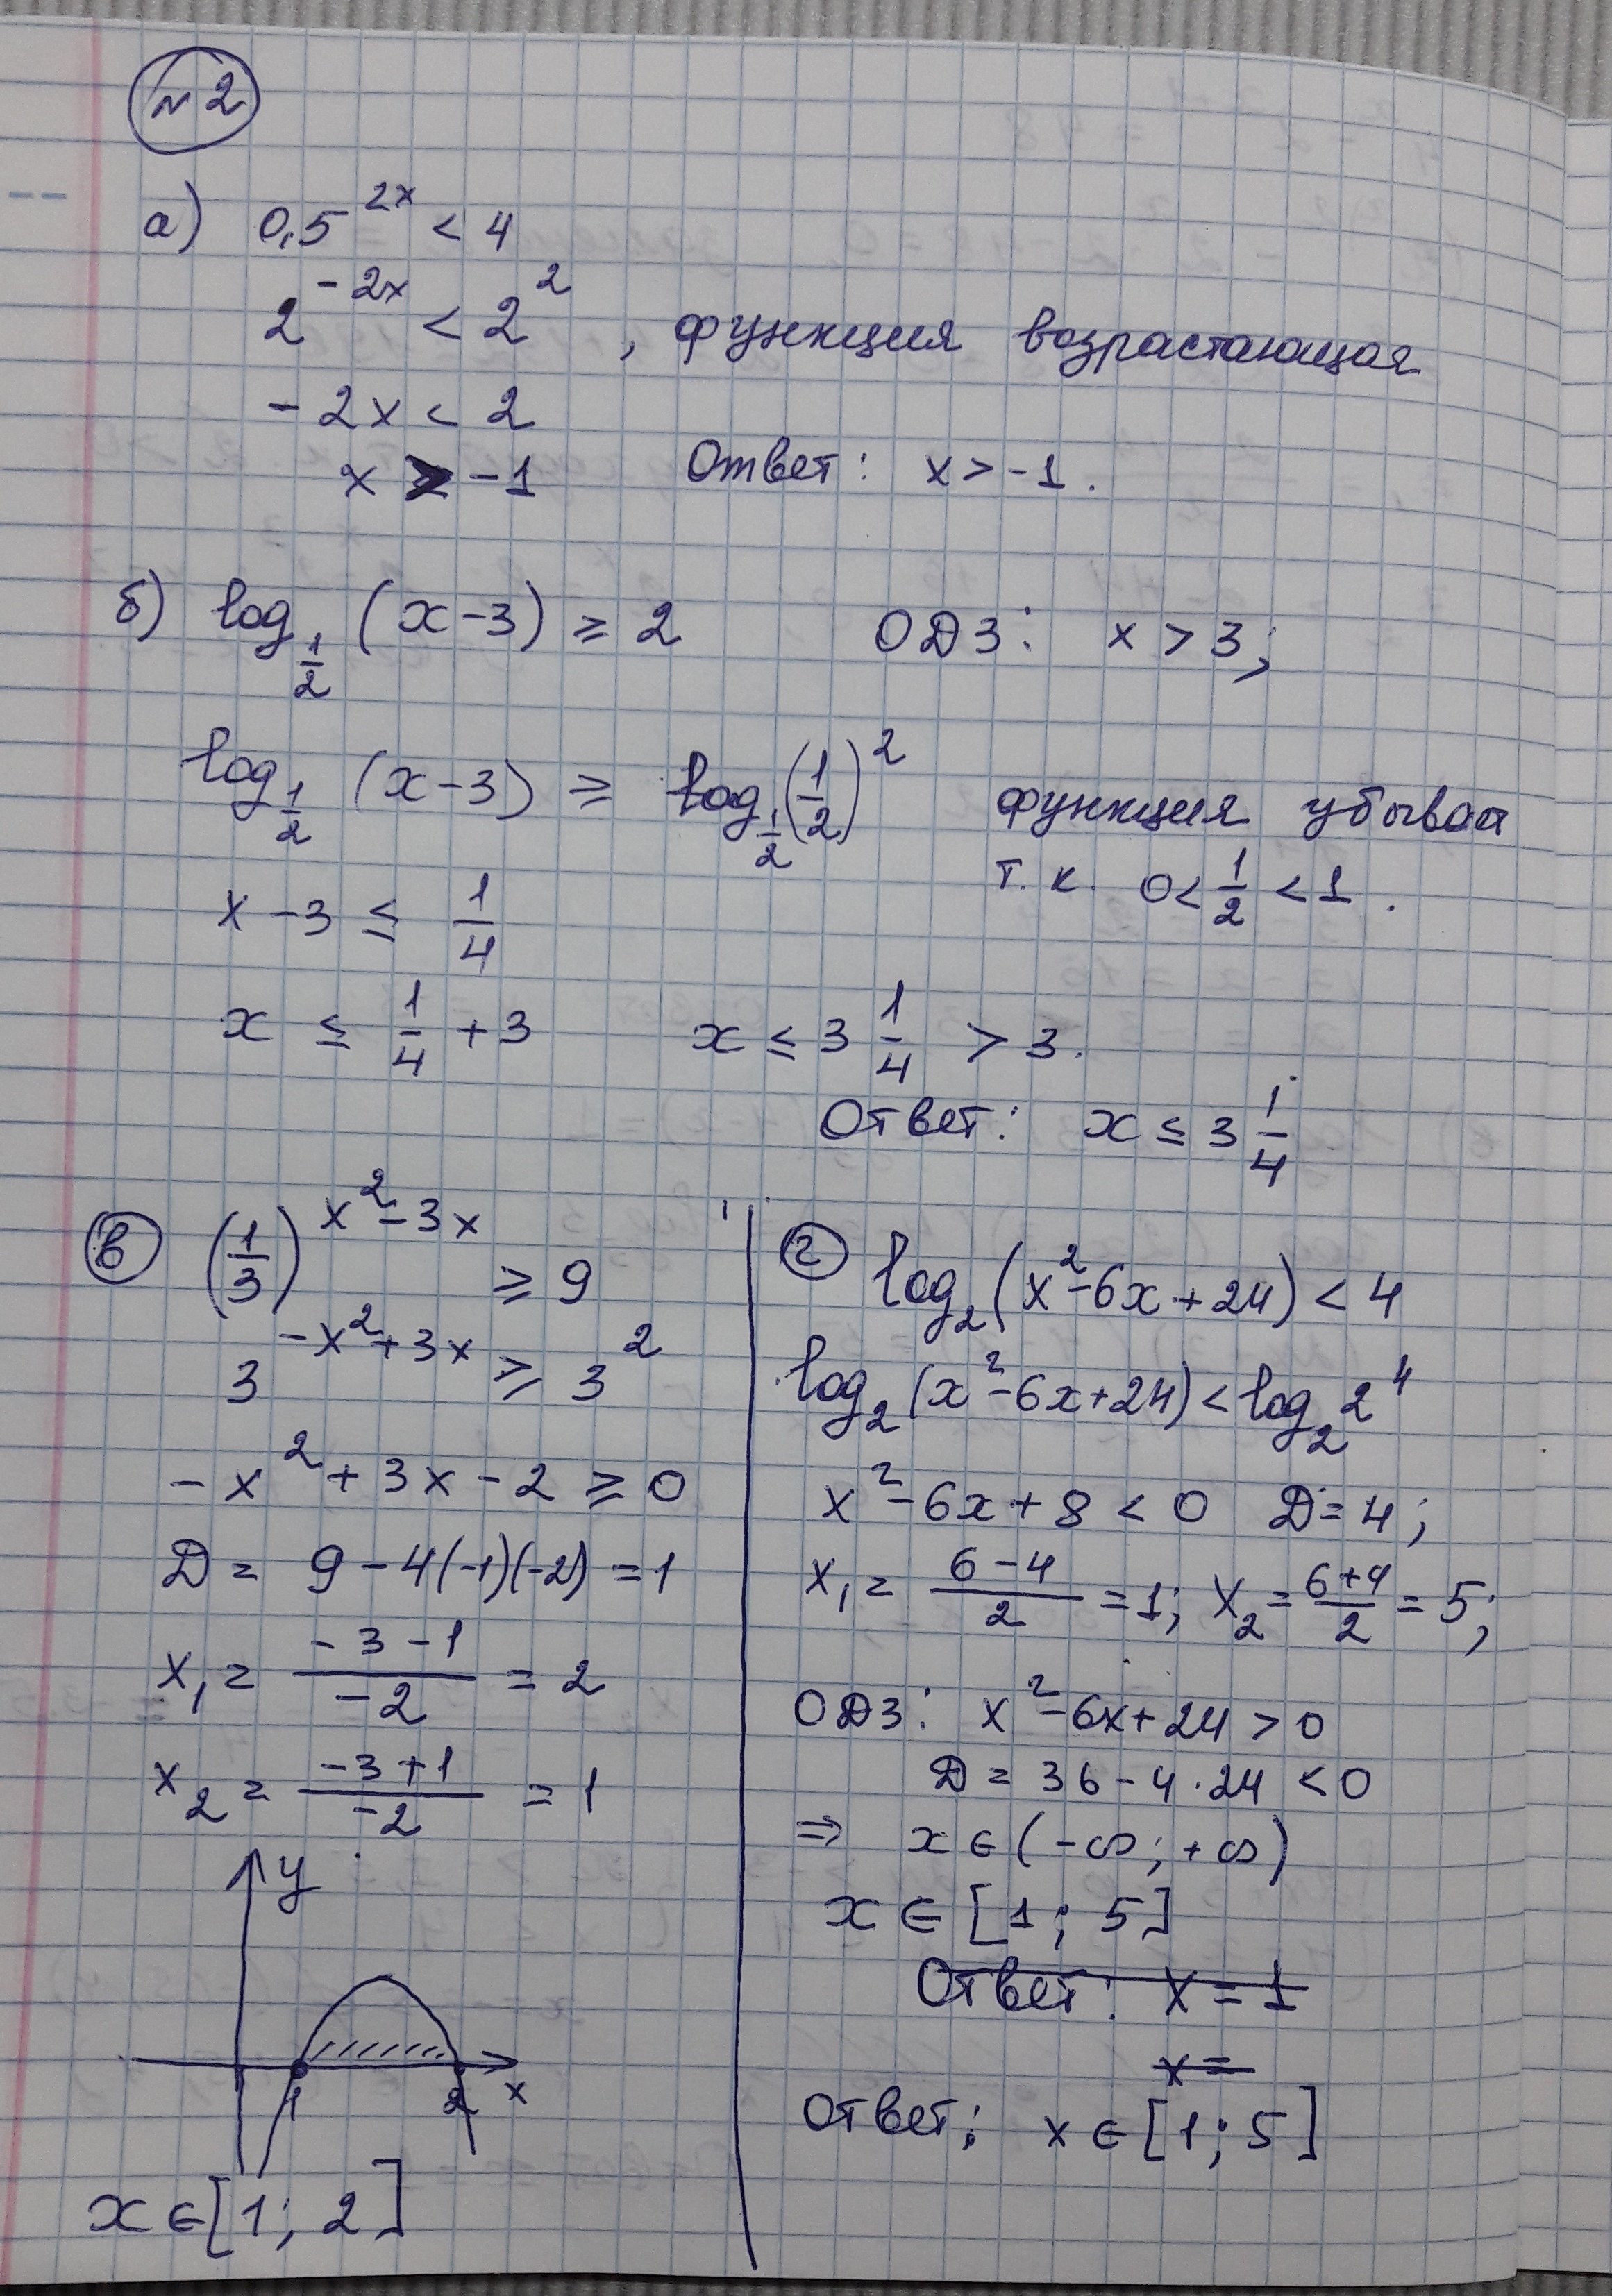 №2
а) 0,5^{2x} < 4
2^{-2x} < 2^2, функция возрастающая
-2x < 2
x > -1 Ответ: x > -1.
б) log_{1/2} (x-3) ≥ 2 ОДЗ: x > 3;
log_{1/2} (x-3) ≥ log_{1/2} (1/2)^2 функция убывает
т.к. 0 < 1/2 < 1.
x-3 ≤ 1/4
x ≤ 1/4 + 3 x ≤ 3 1/4 > 3.
Ответ: x ≤ 3 1/4
в (1/3)^{x^2-3x} ≥ 9
3^{-x^2+3x} ≥ 3^2
-x^2+3x-2 ≥ 0
Д = 9-4(-1)(-2) = 1
x_1 = (-3-1)/(-2) = 2
x_2 = (-3+1)/(-2) = 1
y
1 2 x
x ∈ [1; 2]
г log_2 (x^2-6x+24) < 4
log_2 (x^2-6x+24) < log_2 2^4
x^2-6x+8 < 0 Д = 4;
x_1 = (6-4)/2 = 1; x_2 = (6+4)/2 = 5;
ОДЗ: x^2-6x+24 > 0
Д = 36-4·24 < 0
⇒ x ∈ (-∞; +∞)
x ∈ [1; 5]
Ответ: x = 1
x =
Ответ: x ∈ [1; 5]